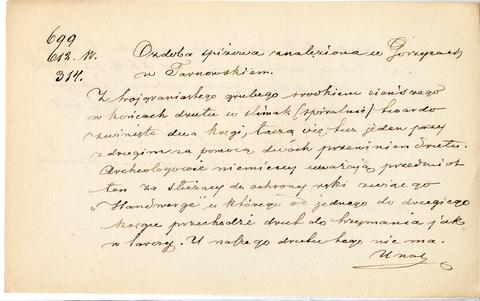 699
612. W.
314.
Ozdoba spiżowa znaleziona w Gorzycach
w Tarnowskiem.
Z trójgraniastego grubego środkiem cieńszego
w końcach drutu w ślimak (spiralnie) twardo
zwinięte dwa kręgi, łączą się tuż jeden przy
drugim za pomocą dwóch przewinień drutu.
Archeologowie niemieccy uważają przedmiot
ten za służący do ochrony ręki zwąc go
"Handberge" u którego od jednego do drugiego
kręgu przechodzi drut do trzymania jak
w tarczy. U naszego drutu tego nie ma.